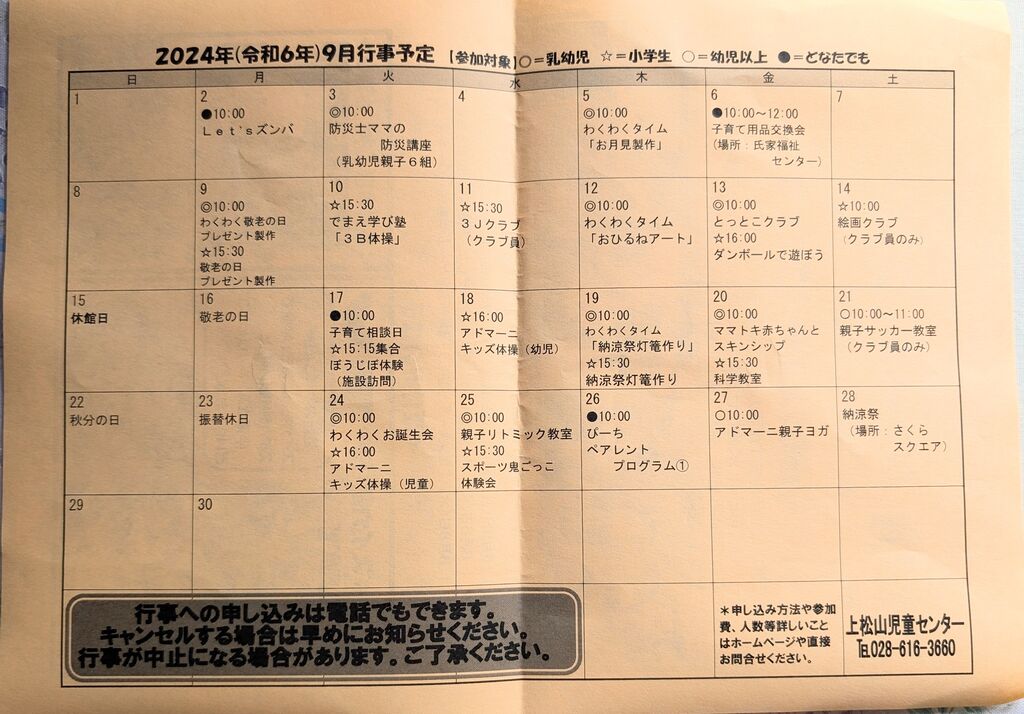 2024年(令和6年)9月行事予定 【参加対象】◎=乳幼児 ☆=小学生 ○=幼児以上 ●=どなたでも
日 月 火 水 木 金 土
1
2
●10:00
Let'sズンバ
3
◎10:00
防災士ママの
防災講座
(乳幼児親子6組)
4
5
◎10:00
わくわくタイム
「お月見製作」
6
●10:00～12:00
子育て用品交換会
(場所：氏家福祉
センター)
7
8
9
◎10:00
わくわく敬老の日
プレゼント製作
☆15:30
敬老の日
プレゼント製作
10
☆15:30
でまえ学び塾
「3B体操」
11
☆15:30
3Jクラブ
(クラブ員)
12
◎10:00
わくわくタイム
「おひるねアート」
13
◎10:00
とっとこクラブ
☆16:00
ダンボールで遊ぼう
14
☆10:00
絵画クラブ
(クラブ員のみ)
15
休館日
16
敬老の日
17
●10:00
子育て相談日
☆15:15集合
ぼうじぼ体験
(施設訪問)
18
☆16:00
アドマーニ
キッズ体操(幼児)
19
◎10:00
わくわくタイム
「納涼祭灯篭作り」
☆15:30
納涼祭灯篭作り
20
◎10:00
ママトキ赤ちゃんと
スキンシップ
☆15:30
科学教室
21
○10:00～11:00
親子サッカー教室
(クラブ員のみ)
22
秋分の日
23
振替休日
24
◎10:00
わくわくお誕生会
☆16:00
アドマーニ
キッズ体操(児童)
25
◎10:00
親子リトミック教室
☆15:30
スポーツ鬼ごっこ
体験会
26
●10:00
ぴーち
ペアレント
プログラム①
27
○10:00
アドマーニ親子ヨガ
28
納涼祭
(場所：さくら
スクエア)
29
30
行事への申し込みは電話でもできます。
キャンセルする場合は早めにお知らせください。
行事が中止になる場合があります。ご了承ください。
＊申し込み方法や参加
費、人数等詳しいこと
はホームページや直接
お問合せください。
上松山児童センター
℡028-616-3660